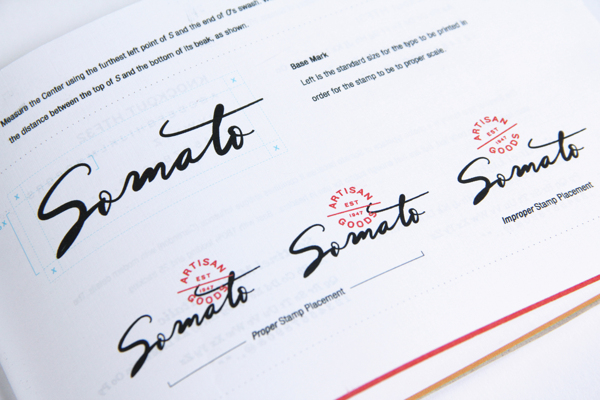 Measure the Center using the furthest left point of S and the end of O's swash.
the distance between the top of S and the bottom of its beak, as shown.
Base Mark
Left is the standard size for the type to be printed in
order for the stamp to be to proper scale.
Somato
ARTISAN
EST
1947
GOODS
Somato
ARTISAN
EST
1947
GOODS
Somato
ARTISAN
EST
1947
GOODS
Somato
Proper Stamp Placement
Improper Stamp Placement